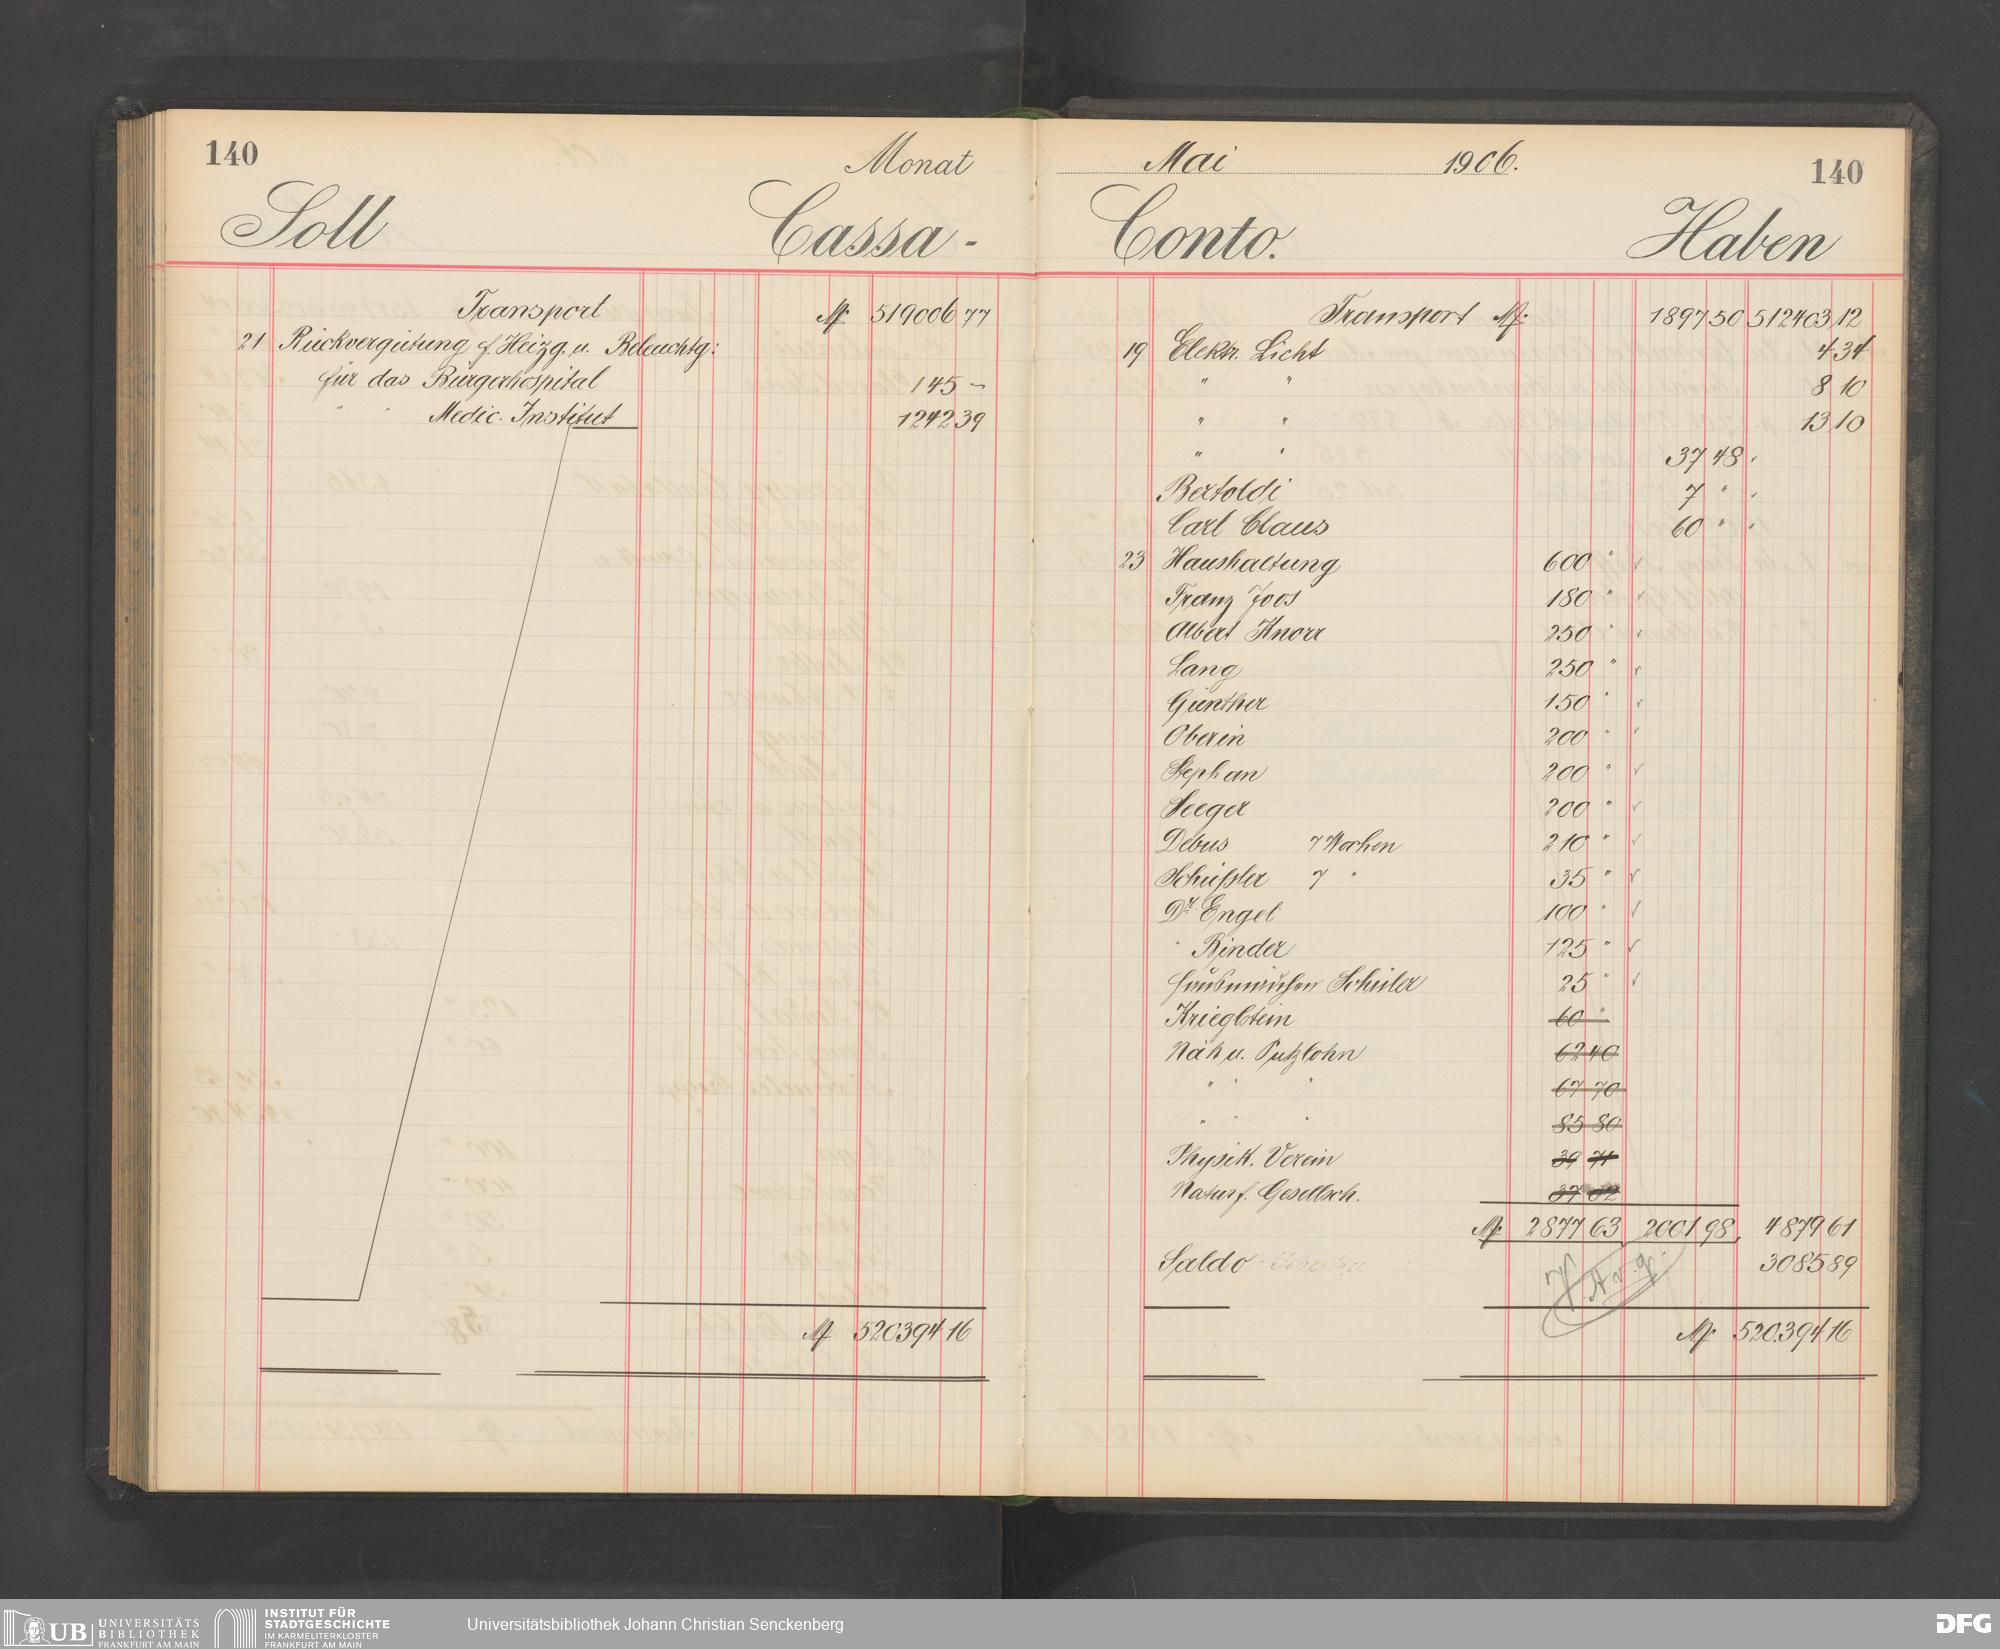 140 Monat
Soll Cassa-
Transport M. 519006 77
21 Rückvergütung f. Heizg. u. Beleuchtg:
für das Bürgerhospital 145 –
" " Medic. Institut 1242 39
M 520394 16
Mai 1906. 140
Conto. Haben
Transport M. 1897 50 512403 12
19 Elektr. Licht 4 34
" " 8 10
" " 13 10
" " 37 48
Bertoldi 7 "
Carl Claus 60 "
23 Haushaltung 600 "
Franz Joos 180 "
Albert Knorr 250 "
Lang 250 "
Günther 150 "
Oberin 200 "
Stephan 200 "
Seeger 200 "
Debus 7 Wochen 210 "
Schüßler 7 " 35 "
Dr. Engel 100 "
" Binder 125 "
Hausmädchen Schüler 25 "
Krieglstein 60 "
Näh u. Putzlohn 62 40
" " " 67 70
" " " 85 80
Physik. Verein 39 71
Naturf. Gesellsch. 37 02
M. 2877 63 2001 98 4879 61
Saldo 3085 89
M. 520394 16
UB UNIVERSITÄTS
BIBLIOTHEK
FRANKFURT AM MAIN
INSTITUT FÜR
STADTGESCHICHTE
IM KARMELITERKLOSTER
FRANKFURT AM MAIN
Universitätsbibliothek Johann Christian Senckenberg
DFG